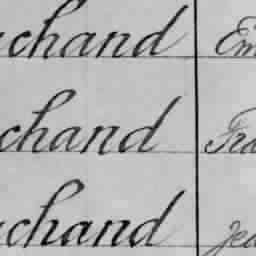 chand Em
chand Fra
chand Jea